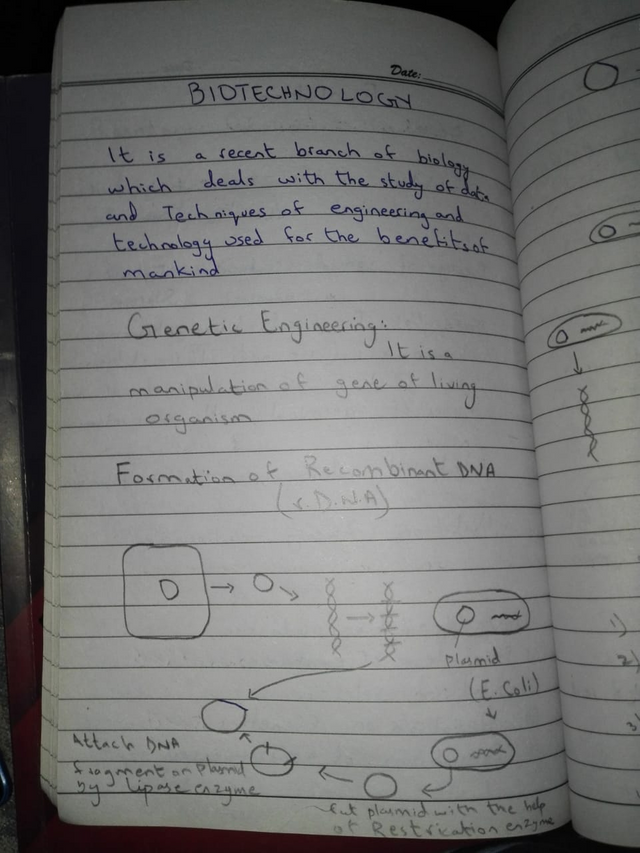 Date:
BIOTECHNOLOGY
It is a recent branch of biology
which deals with the study of data
and Techniques of engineering and
technology used for the benefits of
mankind
Genetic Engineering:
It is a
manipulation of gene of living
organism
Formation of Recombinant DNA
(r.D.N.A)
plasmid
(E.Coli)
Attach DNA
fragment on plasmid
by lipase enzyme
Cut plasmid with the help
of Restrication enzyme
1)
2)
3)